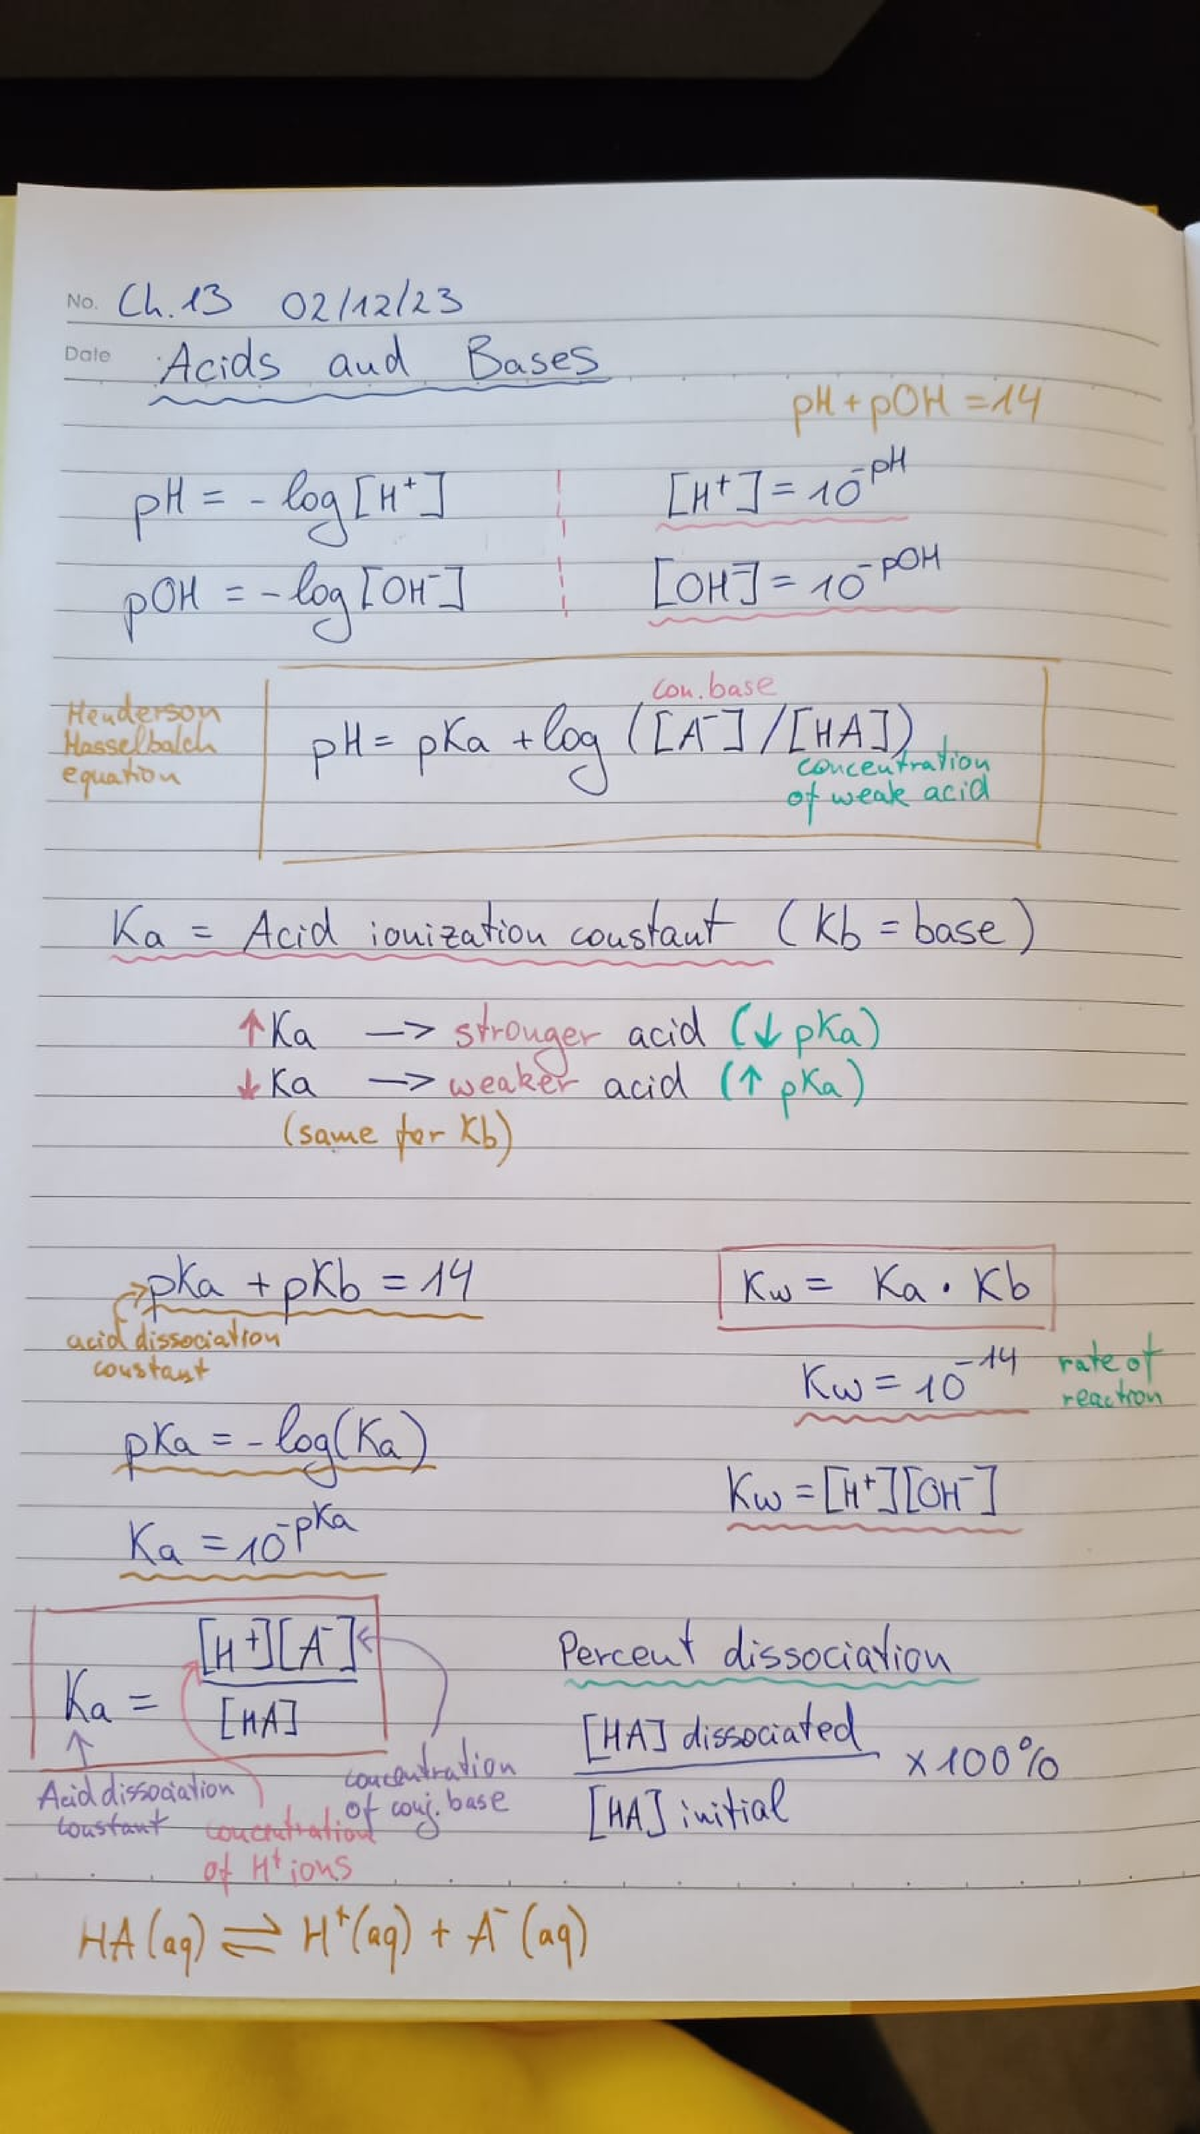 No. Ch. 13 02/12/23
Date Acids and Bases
pH + pOH = 14
pH = - log [H⁺]
[H⁺] = 10^-pH
pOH = - log [OH⁻]
[OH⁻] = 10^-pOH
Henderson
Hasselbalch
equation
con. base
pH = pKa + log ([A⁻] / [HA])
concentration
of weak acid
Ka = Acid ionization constant (Kb = base)
↑ Ka —> stronger acid (↓ pKa)
↓ Ka —> weaker acid (↑ pKa)
(same for Kb)
pKa + pKb = 14
acid dissociation
constant
Kw = Ka · Kb
Kw = 10^-14
rate of
reaction
pKa = - log(Ka)
Kw = [H⁺][OH⁻]
Ka = 10^-pKa
Ka = [H⁺][A⁻]
[HA]
Acid dissociation
constant
concentration
of H⁺ ions
concentration
of conj. base
Percent dissociation
[HA] dissociated
[HA] initial
x 100%
HA (aq) ⇌ H⁺(aq) + A⁻ (aq)